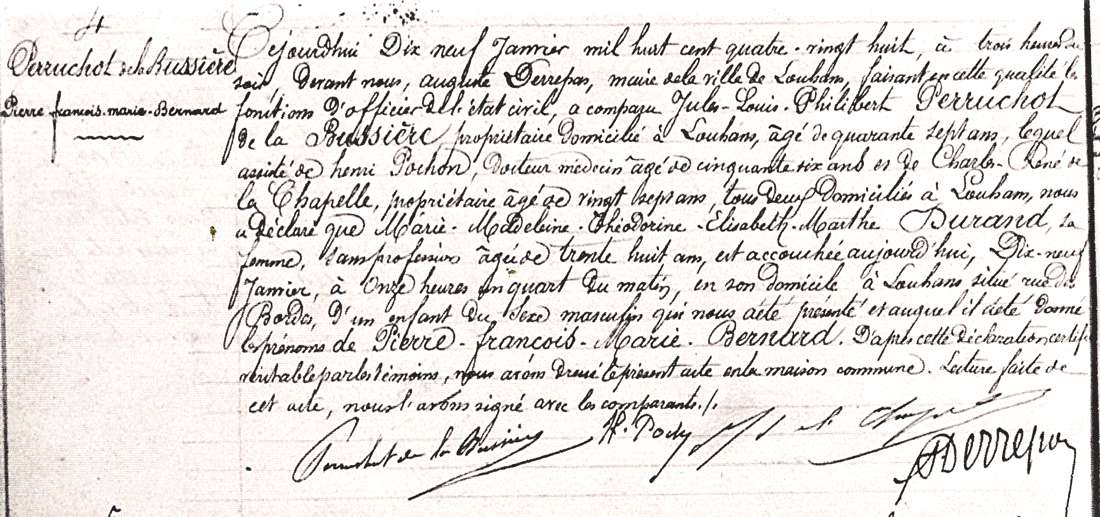 4
Perruchot de la Bussière
Pierre-françois-marie-Bernard
Cejourdhui Dix neuf Janvier mil huit cent quatre-vingt huit, à trois heures du
soir, devant nous, auguste Derrepas, maire de la ville de Louhans, faisant en cette qualité les
fonctions d'officier de l'état civil, a comparu Jules-Louis-Philibert Perruchot
de la Bussière, propriétaire domicilié à Louhans, âgé de quarante sept ans, lequel
assisté de henri Pochon, Docteur médecin âgé de cinquante six ans et de Charles-René de
la Chapelle, propriétaire âgé de vingt sept ans, tous deux Domiciliés à Louhans, nous
a déclaré que Marie-Madeleine-Théodorine-Elisabeth-Marthe Durand, sa
femme, sans profession âgée de trente huit ans, est accouchée aujourd'hui, Dix-neuf
Janvier, à Onze heures un quart du matin, en son domicile à Louhans situé rue des
Bordes, D'un enfant du Sexe masculin qui nous a été présenté et auquel il a été donné
les prénoms de Pierre-françois-Marie-Bernard. D'après cette déclaration certifiée
véritable par les témoins, nous avons dressé le présent acte en la maison commune. Lecture faite de
cet acte, nous l'avons signé avec les comparants./.
Perruchot de la Bussière
ADerrepas